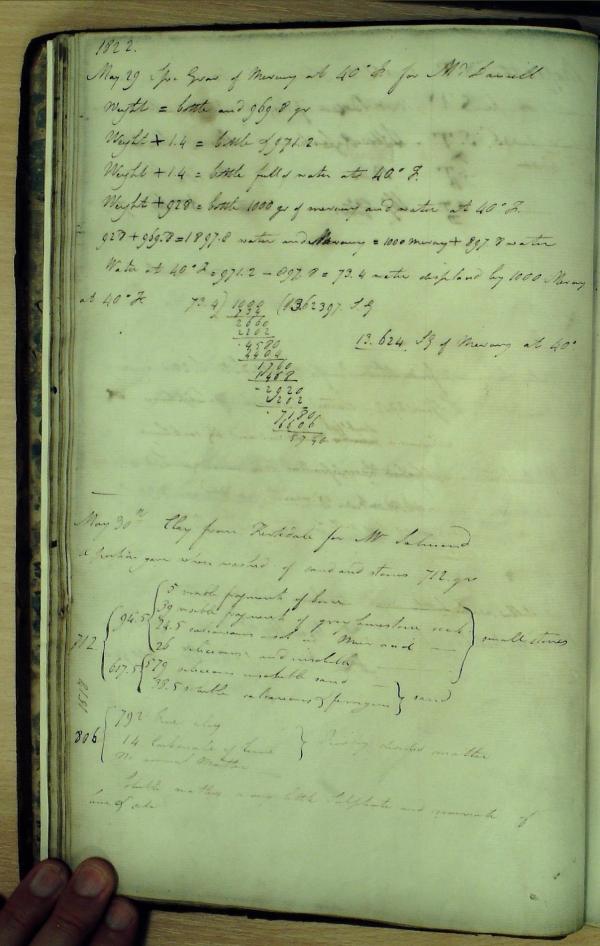 1822.
May 29 Spe Grav of Mercury at 40° F. for Mr
Weight = bottle and 969.8 gr
Weight + 1.4 = bottle & 971.2
Weight + 1.4 = bottle full of water at 40° F.
Weight + 928 = bottle 1000 gr of mercury and water at 40° F.
928 + 969.8 = 1897.8 water and Mercury = 1000 mercury + 897.8 water
Water at 40° F = 971.2 - 897.8 = 73.4 water displaced by 1000 Mercury
at 40° F 73.4) 1000 (13.62397. S.G
734
2660
2202
4580
4404
1760
1468
2920
2202
7180
6606
5740
13.624. SG of Mercury at 40°
May 30th Clay from for Mr
A portion gave when washed of sand and stones 712. grs
712
94.5
5 visible fragments of bone
39 visible fragments of grey limestone rock
24.5 calcareous and in Muri acid
26 siliceous and insoluble
small stones
617.5
579 siliceous insoluble sand
38.5 soluble calcareous & ferruginous
sand
1518
806
792 clay
14 Carbonate of lime
No animal Matter
divided matter
Soluble matter a very little Sulphate and muriate of
lime &